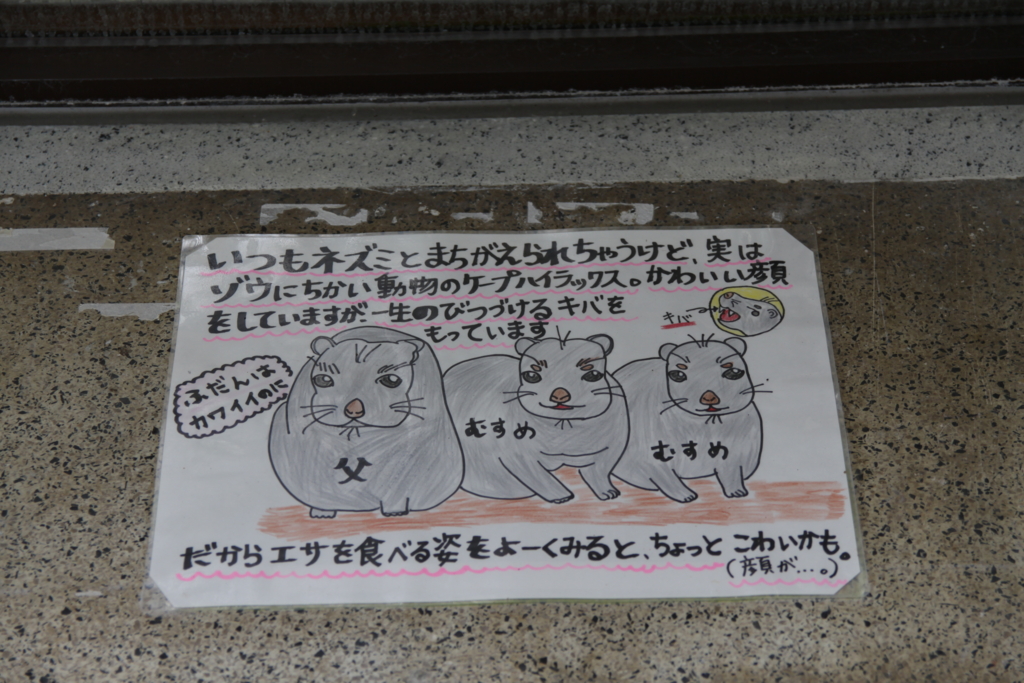 いつもネズミとまちがえられちゃうけど、実は
ゾウにちかい動物のケープハイラックス。かわいい顔
をしていますが一生のびつづけるキバを
もっています
キバ
ふだんは
カワイイのに
父
むすめ
むすめ
だからエサを食べる姿をよーくみると、ちょっとこわいかも。
(顔が...。)